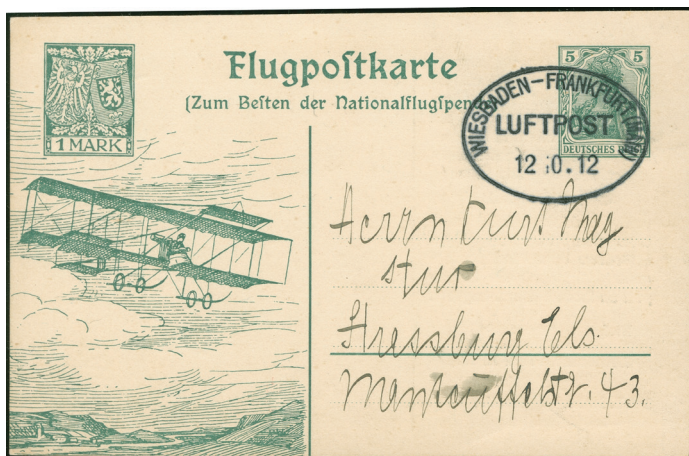 Flugpoſtkarte
(Zum Beſten der Nationalflugſpen
1 MARK
5 5
DEUTSCHES
WIESBADEN-FRANKFURT (MAIN)
LUFTPOST
12 10.12
Herrn Kurt
Strassburg Els.
Manteuffelstr. 43.